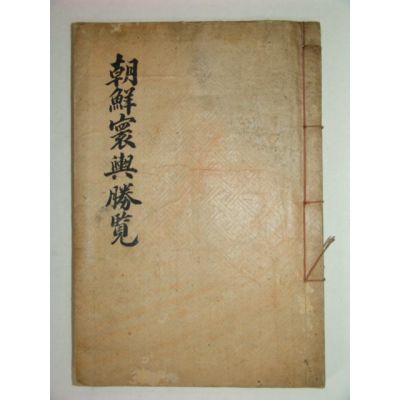 朝鮮寰輿勝覽